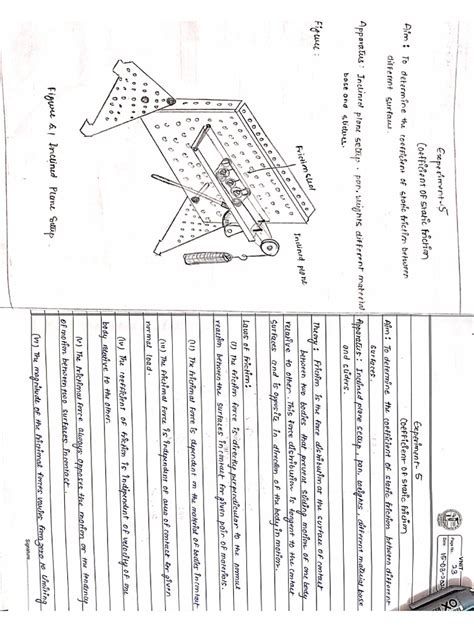 Experiment-5
Coefficient of static friction
Aim: To determine the coefficient of static friction between
different surface.
Apparatus: Inclined plane setup, pan, weights, different material
base and sliders.
Figure:
Friction slab
Inclined plane
Figure 6.1 Inclined Plane Setup
UNIT
Page No. 23
Date 15-03-202
Experiment-5
Coefficient of static friction
Aim: To determine the coefficient of static friction between different
surfaces.
Apparatus: Inclined plane setup, pan, weights, different material base
and sliders.
Theory: Friction is the force distribution at the surface of contact
between two bodies that prevent sliding motion of one body
relative to other. This force distribution is tangent to the contact
surfaces and is opposite in direction of the body in motion.
Laws of friction:
(i) The friction force is directly perpendicular to the normal
reaction between the surfaces in contact for given pair of materials.
(ii) The frictional force is dependent on the material of bodies in contact
(iii) The frictional force is independent of area of contact for given
normal load.
(iv) The coefficient of friction is independent of velocity of one
body relative to the other.
(v) The frictional force always opposes the motion or the tendency
of motion between two surfaces in contact.
(vi) The magnitude of the frictional forces varies from zero to limiting
Signature